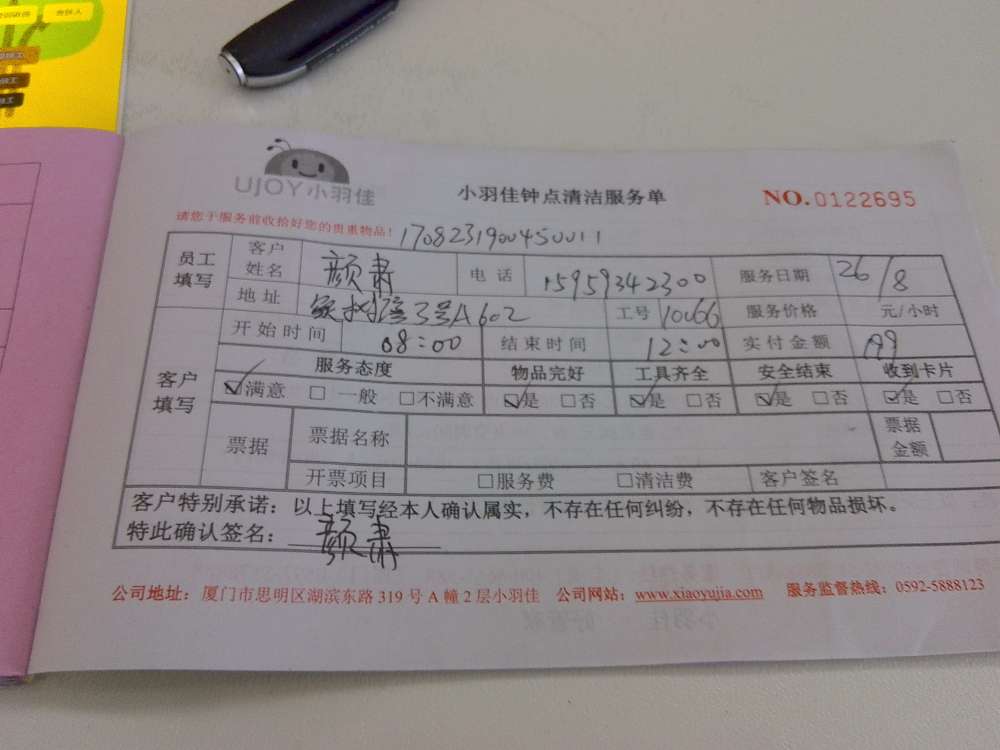 UJOY小羽佳 小羽佳钟点清洁服务单 NO.0122695
请您于服务前收拾好您的贵重物品! 1708231900450011
员工填写 客户姓名 颜肃 电话 15959342300 服务日期 26/8
地址 3号A602 工号 10066 服务价格 元/小时
客户填写 开始时间 08:00 结束时间 12:00 实付金额
服务态度 物品完好 工具齐全 安全结束 收到卡片
☑满意 □一般 □不满意 ☑是 □否 ☑是 □否 ☑是 □否 ☑是 □否
票据 票据名称 票据金额
开票项目 □服务费 □清洁费 客户签名
客户特别承诺：以上填写经本人确认属实，不存在任何纠纷，不存在任何物品损坏。
特此确认签名： 颜肃
公司地址：厦门市思明区湖滨东路319号A幢2层小羽佳 公司网站：www.xiaoyujia.com 服务监督热线：0592-5888123